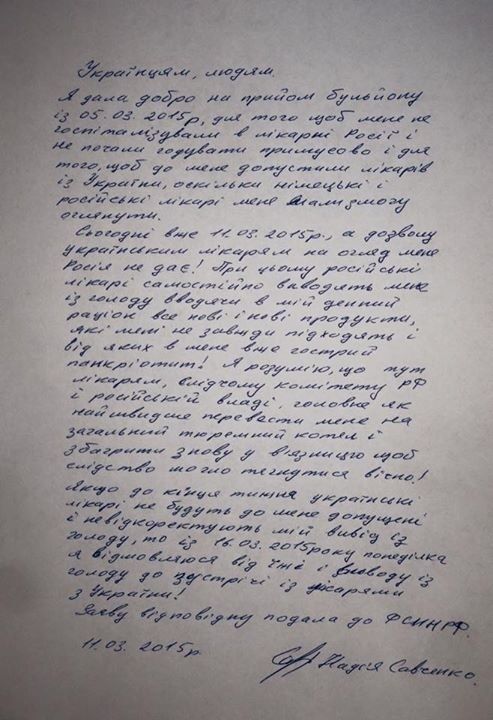 Українцям, людям.
Я дала добро на прийом бульйону
із 05.03.2015р, для того щоб мене не
госпіталізували в лікарні Росії і
не почали годувати примусово і для
того, щоб до мене допустили лікарів
із України, оскільки німецькі і
російські лікарі мене мали змогу
оглянути.
Сьогодні вже 11.03.2015р., а дозволу
українським лікарям на огляд мене
Росія не дає! При цьому російські
лікарі самостійно виводять мене
із голоду вводячи в мій денний
раціон все нові і нові продукти,
які мені не завжди підходять і
від яких в мене вже гострий
панкріотит! Я розумію, що тут
лікарям, слідчому комітету РФ
і російській владі, головне як
найшвидше перевести мене на
загальний тюремний котел і
збагрити знову у в'язницю щоб
слідство могло тягнутися вічно!
Якщо до кінця тижня українські
лікарі не будуть до мене допущені
і невідкоректують мій вивід із
голоду, то із 16.03.2015року понеділка
я відмовляюся від їжі і виводу із
голоду до зустрічі із лікарями
з України!
Заяву відповідну подала до ФСИН РФ.
11.03.2015р.
Надія Савченко.